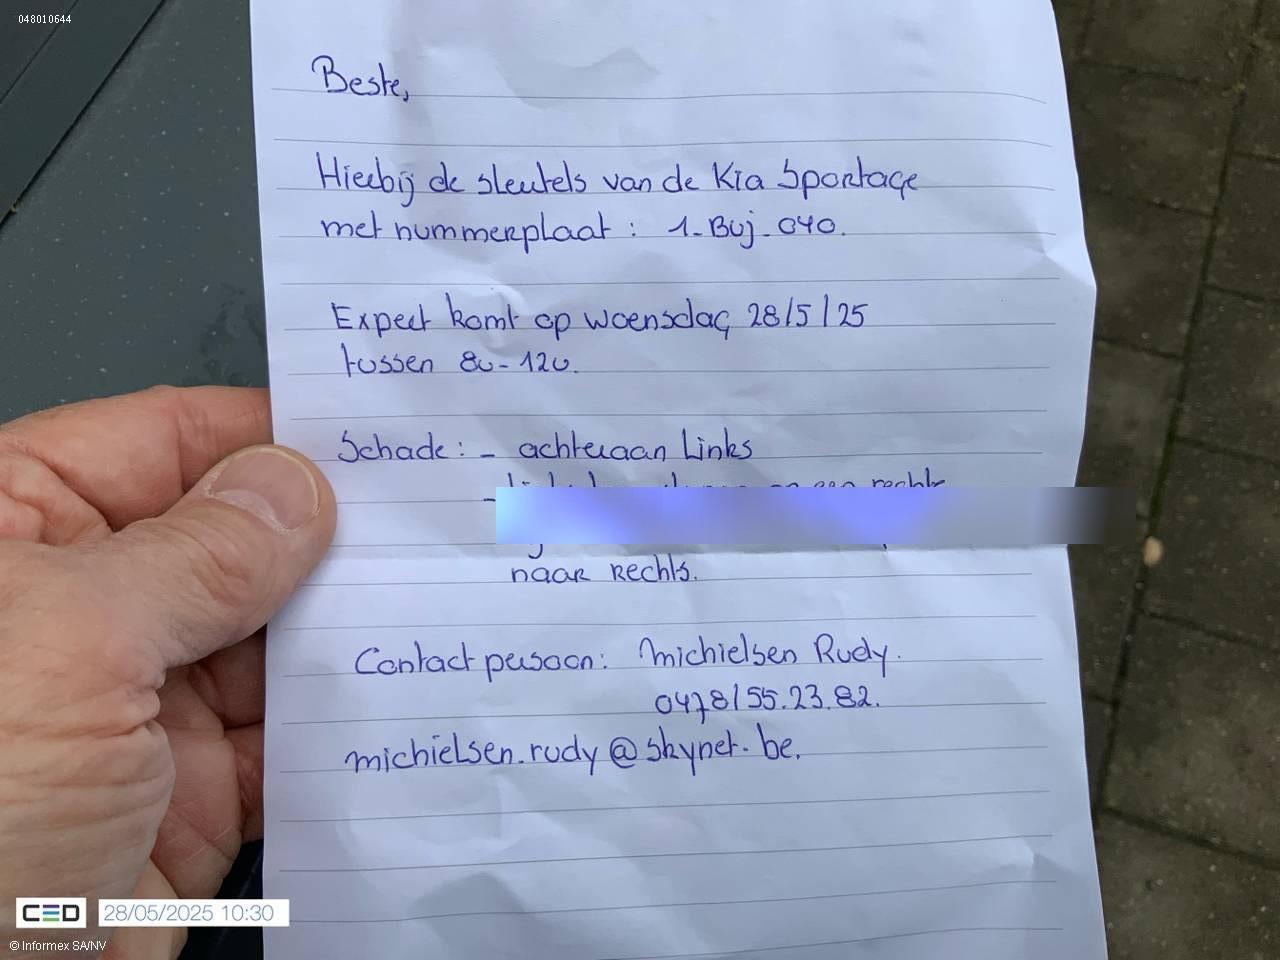 048010644
Beste,
Hierbij de sleutels van de Kia Sportage
met nummerplaat : 1-BUJ-040.
Expert komt op woensdag 28/5/25
tussen 8u-12u.
Schade : - achteraan Links
-
naar rechts.
Contact persoon : Michielsen Rudy.
0478/55.23.82.
michielsen.rudy@skynet.be.
CED 28/05/2025 10:30
© Informex SA/NV